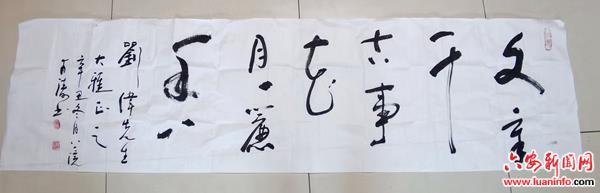 文章
千
古事
花
月一簾
劉偉先生
大雅正之
辛丑冬月
六安新闻网
www.luaninfo.com